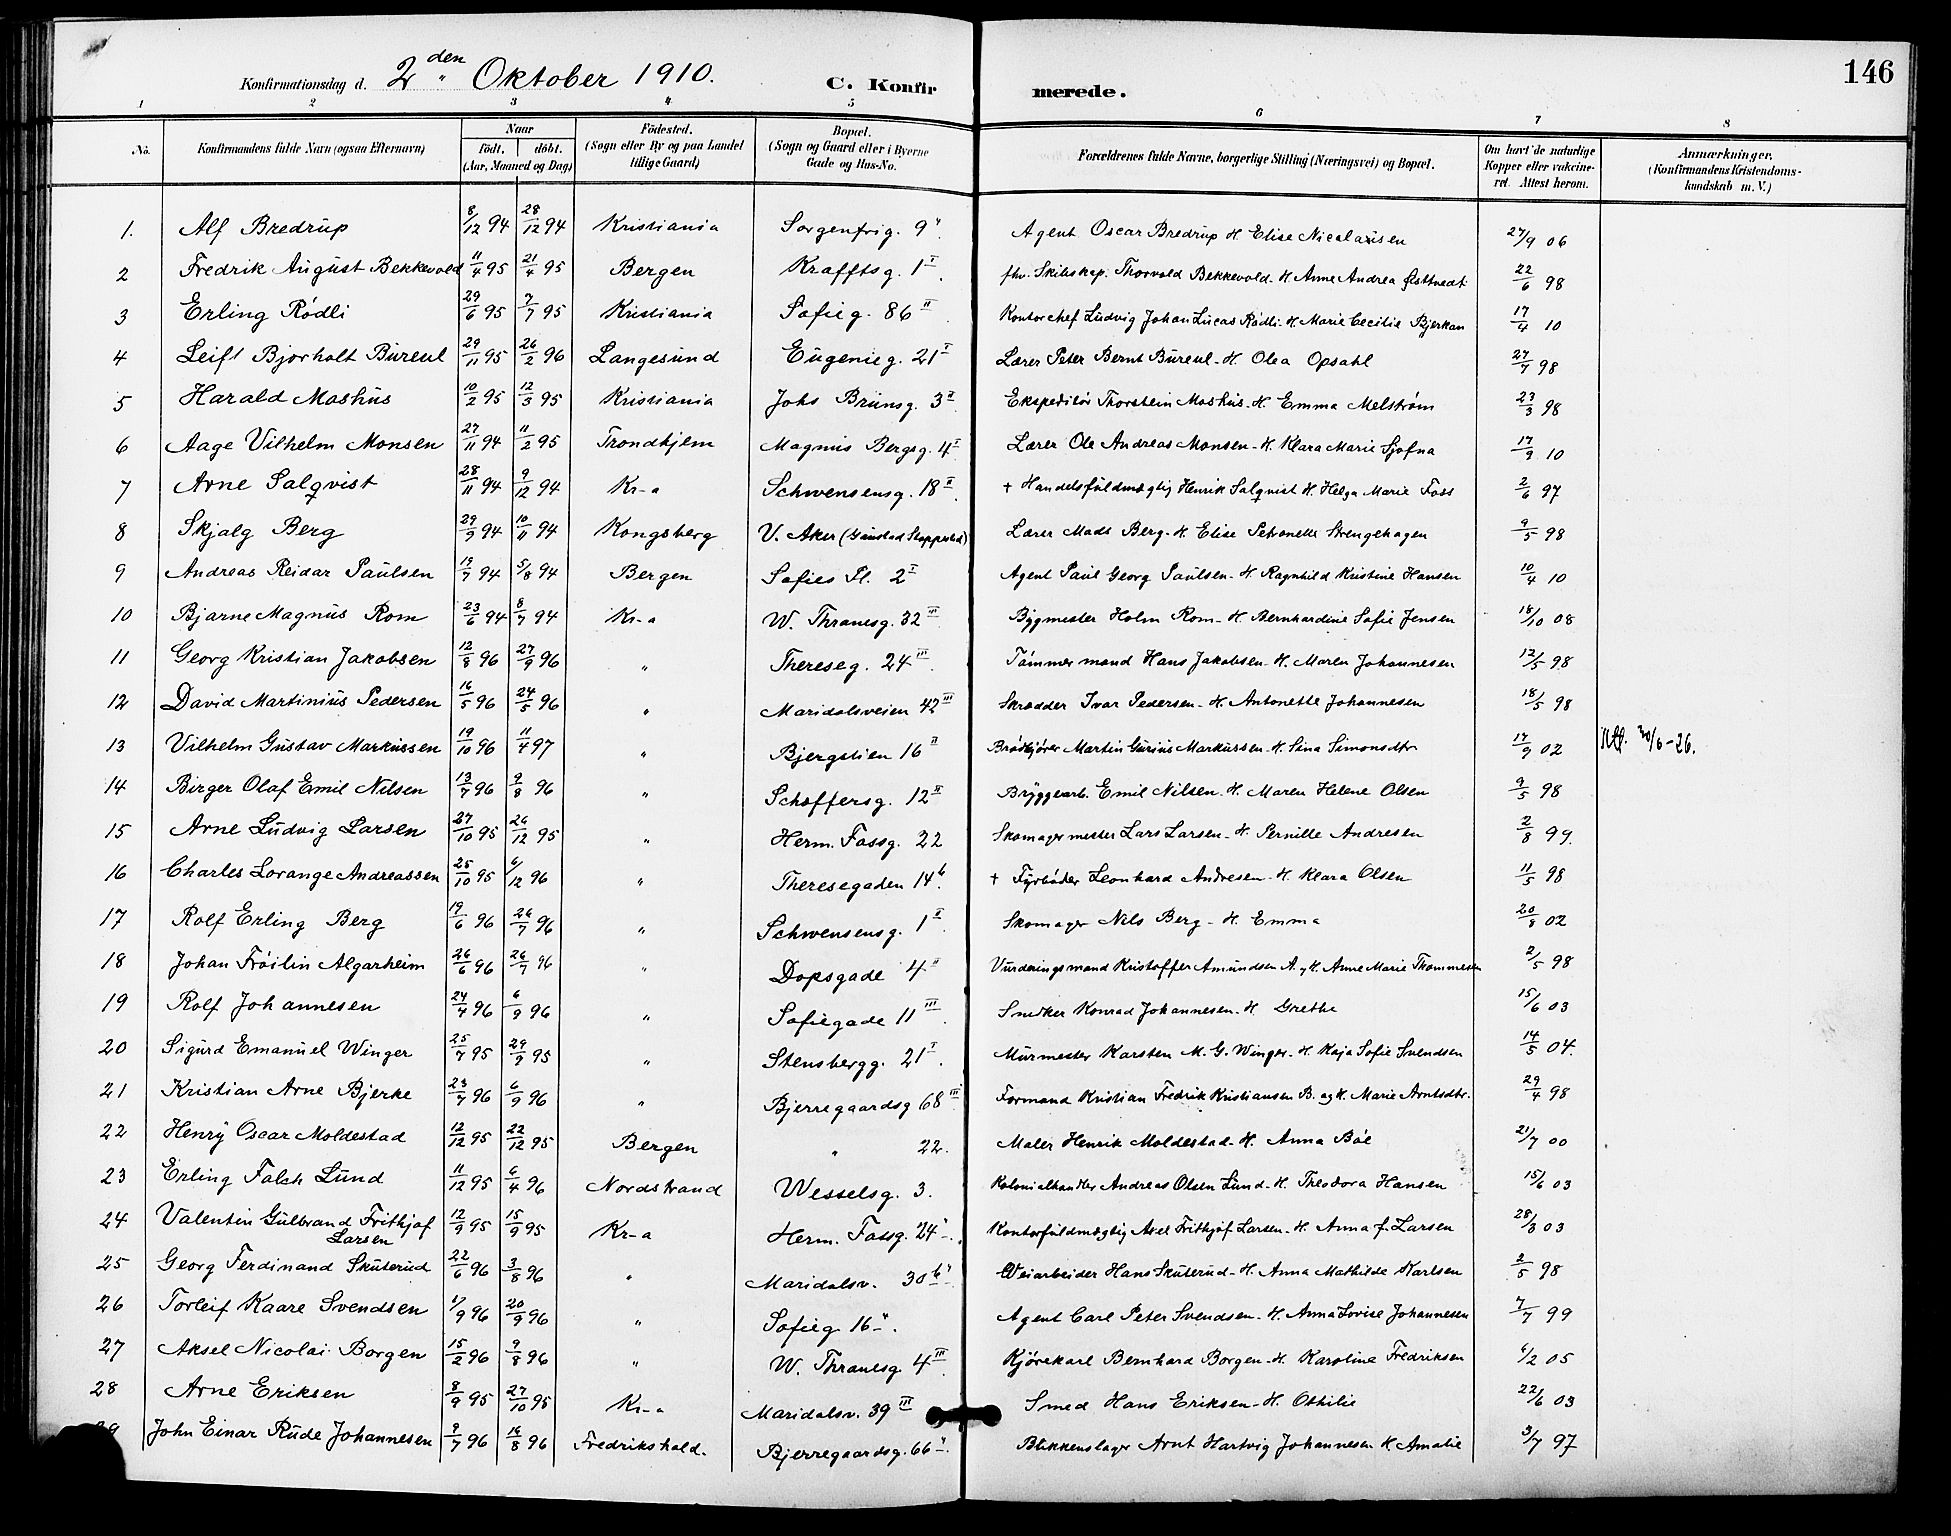 146
Konfirmationsdag d. 2den Oktober 1910. C. Konfirmerede.
1 2 3 4 5 6 7 8
No. Konfirmandens fulde Navn (ogsaa Efternavn) Naar födt, döbt. (Aar, Maaned og Dag) Födested. (Sogn eller By og paa Landet tillige Gaard) Bopæl. (Sogn og Gaard eller i Byerne Gade og Hus-No. Forældrenes fulde Navne, borgerlige Stilling (Næringsvei) og Bopæl. Om havt de naturlige Kopper eller vakcineret. Attest herom. Anmærkninger. (Konfirmandens Kristendomskundskab m. V.)
1. Alf Bredrup 8/12 94 28/12 94 Kristiania Sorgenfrig. 9". Agent Oscar Bredrup H. Elise Nicolaisen 27/9 06
2 Fredrik August Bekkevold 11/4 95 21/4 95 Bergen Kraftsg. 1 I. fhv. Skibskap. Thorvald Bekkevold. H. Anne Andrea 22/6 98
3 Erling Rödli 29/6 95 7/7 95 Kristiania Sofieg. 86 II Kontorchef Ludvig Johan Lucas Rödli. H. Marie Cecilie Bjerkan 17/4 10
4 Leif Bjorholt Bureul 29/11 95 26/2 96 Langesund Eugenieg. 21 I Lærer Peter Bernt Bureul. H. Olea Opsahl 27/7 98
5 Harald Moshus 10/2 95 12/3 95 Kristiania Johs Brunsg. 3 II. Ekspeditör Thorstein Moshus. H. Emma Melström 23/3 98
6 Aage Vilhelm Monsen 27/11 94 11/2 95 Trondhjem Magnus Bergsg. 4 I Lærer Ole Andreas Monsen. H. Klara Marie Sjofna 17/9 10
7 Arne Salqvist 28/11 94 9/12 94 Kr-a Schwensensg. 18 II. † Handelsfuldmægtig Henrik Salqvist H. Helga Marie Foss 2/6 97
8 Skjalg Berg 29/9 94 10/11 94 Kongsberg V. Aker (Gaustad Stoppested) Lærer Mads Berg. H. Elise Petronelle Strengehagen 9/5 98
9 Andreas Reidar Paulsen 19/7 94 5/8 94 Bergen Sofies Pl. 2 I Agent Paul Georg Paulsen. H. Ragnhild Kristine Hansen 10/4 10
10 Bjarne Magnus Rom 23/6 94 8/7 94 Kr-a W. Thranesg. 32 III. Bygmester Holm Rom. H. Bernhardine Sofie Jensen 18/10 08
11 Georg Kristian Jakobsen 12/8 96 27/9 96 " Thereseg. 24 III. Tömmermand Hans Jakobsen. H. Maren Johannesen 12/5 98
12 David Martinius Pedersen 16/5 96 24/5 96 " Maridalsveien 42 III Skrædder Ivar Pedersen. H. Antonette Johannesen 18/5 98
13 Vilhelm Gustav Markussen 19/10 96 11/4 97 " Bjergstien 16 II Brödkjörer Martin Gurius Markussen. H. Lina Simonsdtr 17/9 02 Utf. 30/6-26.
14 Birger Olaf Emil Nilsen 13/7 96 9/8 96 " Schoffersg. 12 II Bryggearb. Emil Nilsen. H. Maren Helene Olsen 9/5 98
15 Arne Ludvig Larsen 27/10 95 26/12 95 " Herm. Fossg. 22 Skomagermester Lars Larsen. H. Pernille Andresen 2/8 99.
16 Charles Lorange Andreassen 25/10 95 6/12 96 " Theresegaden 14 b. † Fyrböder Leonhard Andresen. H. Klara Olsen 11/5 98
17 Rolf Erling Berg 19/6 96 26/7 96 " Schwensensg. 1 I. Skomager Nils Berg. H. Emma 20/8 02
18 Johan Fröilin Algarheim 26/6 96 26/7 96 " Dopsgade 4 II Vurderingsmand Kristoffer Amundsen A. og H. Anne Marie Thommesen 2/5 98
19 Rolf Johannesen 24/4 96 6/9 96 " Sofiegade 11 III. Snedker Konrad Johannesen. H. Grethe 15/6 03
20 Sigurd Emanuel Winger 25/7 95 29/9 95 " Stensbergg. 21 I. Murmester Karsten M. G. Winger. H. Kaja Sofie Svendsen 14/5 04.
21 Kristian Arne Bjerke 23/7 96 6/9 96 " Bjerregaardsg 68 III Formand Kristian Fredrik Kristiansen B. og H. Marie Arntsdtr. 29/4 98
22 Henry Oscar Moldestad 12/12 95 22/12 95 Bergen " 22. Maler Henrik Moldestad. H. Anna Böe 21/7 00
23 Erling Falch Lund 11/12 95 6/4 96 Nordstrand Wesselsg. 3. Kolonialhandler Andreas Olsen Lund. H. Theodora Hansen 15/6 03
24 Valentin Gulbrand Frithjof Larsen 12/9 95 15/9 95 Kr-a Herm. Fossg. 24". Kontorfuldmægtig Axel Frithjof Larsen. H. Anna f. Larsen 28/3 03
25 Georg Ferdinand Skuterud 22/6 96 3/8 96 " Maridalsv. 30 b" Veiarbeider Hans Skuterud. H. Anna Mathilde Karlsen 2/5 98
26 Torleif Kaare Svendsen 1/9 96 20/9 96 " Sofieg 16". Agent Carl Peter Svendsen. H. Anna Lovise Johannesen 7/7 99
27 Aksel Nicolai Borgen 15/2 96 9/8 96 " W. Thranesg 4 III. Kjörekarl Bernhard Borgen. H. Karoline Fredriksen 6/2 05
28 Arne Eriksen 8/9 95 27/10 95 Kr-a Maridalsv. 39 III Smed Hans Eriksen. H. Othilie 22/6 03
9 John Einar Rude Johannesen 9/7 96 16/8 96 Fredrikshald. Bjerregaardsg. 66". Blikkenslager Arnt Hartvig Johannesen H. Amalie 3/7 97